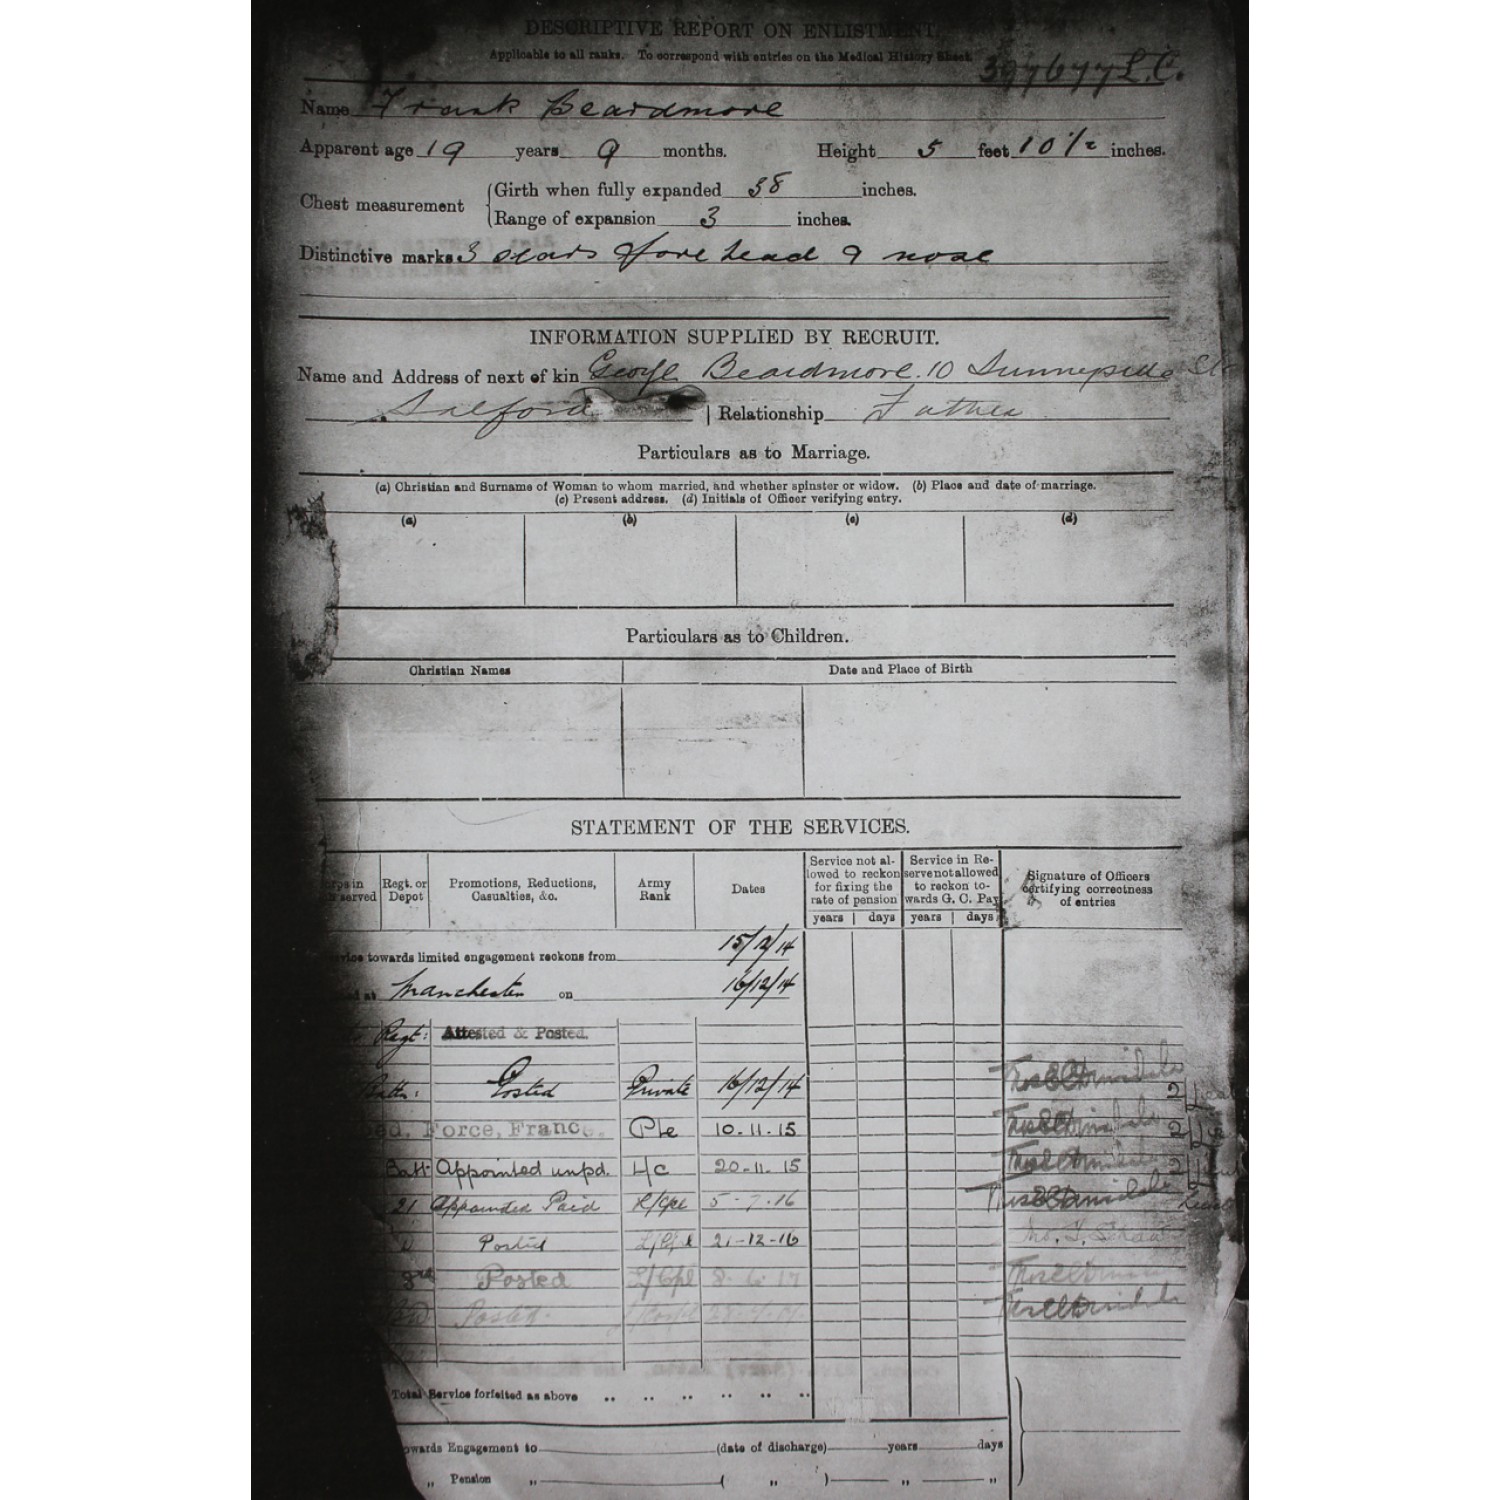 DESCRIPTIVE REPORT ON ENLISTMENT.
Applicable to all ranks. To correspond with entries on the Medical History Sheet
397677 L.C.
Name Frank Beardmore
Apparent age 19 years 9 months. Height 5 feet 10 1/2 inches.
Chest measurement
Girth when fully expanded 38 inches.
Range of expansion 3 inches.
Distinctive marks 3 scars forehead & nose
INFORMATION SUPPLIED BY RECRUIT.
Name and Address of next of kin George Beardmore. 10 Sunnyside St
Salford | Relationship Father
Particulars as to Marriage.
(a) Christian and Surname of Woman to whom married, and whether spinster or widow. (b) Place and date of marriage.
(c) Present address. (d) Initials of Officer verifying entry.
(a) (b) (c) (d)
Particulars as to Children.
Christian Names Date and Place of Birth
STATEMENT OF THE SERVICES.
in served
Regt. or Depot
Promotions, Reductions, Casualties, &c.
Army Rank
Dates
Service not allowed to reckon for fixing the rate of pension
years days
Service in Reserve not allowed to reckon towards G. C. Pay
years days
Signature of Officers certifying correctness of entries
towards limited engagement reckons from 15/12/14
at Manchester on 16/12/14
Regt: Attested & Posted.
Battn: Posted Private 16/12/14 2 Lieut
Force, France. Pte 10-11-15
Batt Appointed unpd. L/c 20-11-15
21 Appointed Paid L/Cpl 5-7-16
Posted L/Cpl 21-12-16
3rd Posted L/Cpl 8-6-17
Posted
Total Service forfeited as above .. .. .. .. .. ..
towards Engagement to (date of discharge) years days
„ Pension „ ( „ ) „ „